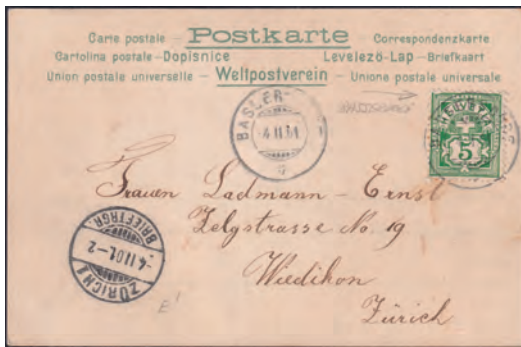 Carte postale – Postkarte – Correspondenzkarte
Cartolina postale – Dopisnice Levelező-Lap – Briefkaart
Union postale universelle – Weltpostverein – Unione postale universale
BASLER
4 II 01
HELVETIA
5
Frauen Ladmann – Ernst
Zelgstrasse No. 19
Wiedikon
Zürich
ZÜRICH 1
-4.II.01.-2
BRIEFTRGR.